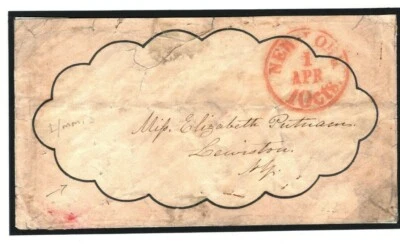 NEW YORK
1
APR
10 cts
Miss Elizabeth Putnam.
Lewiston.